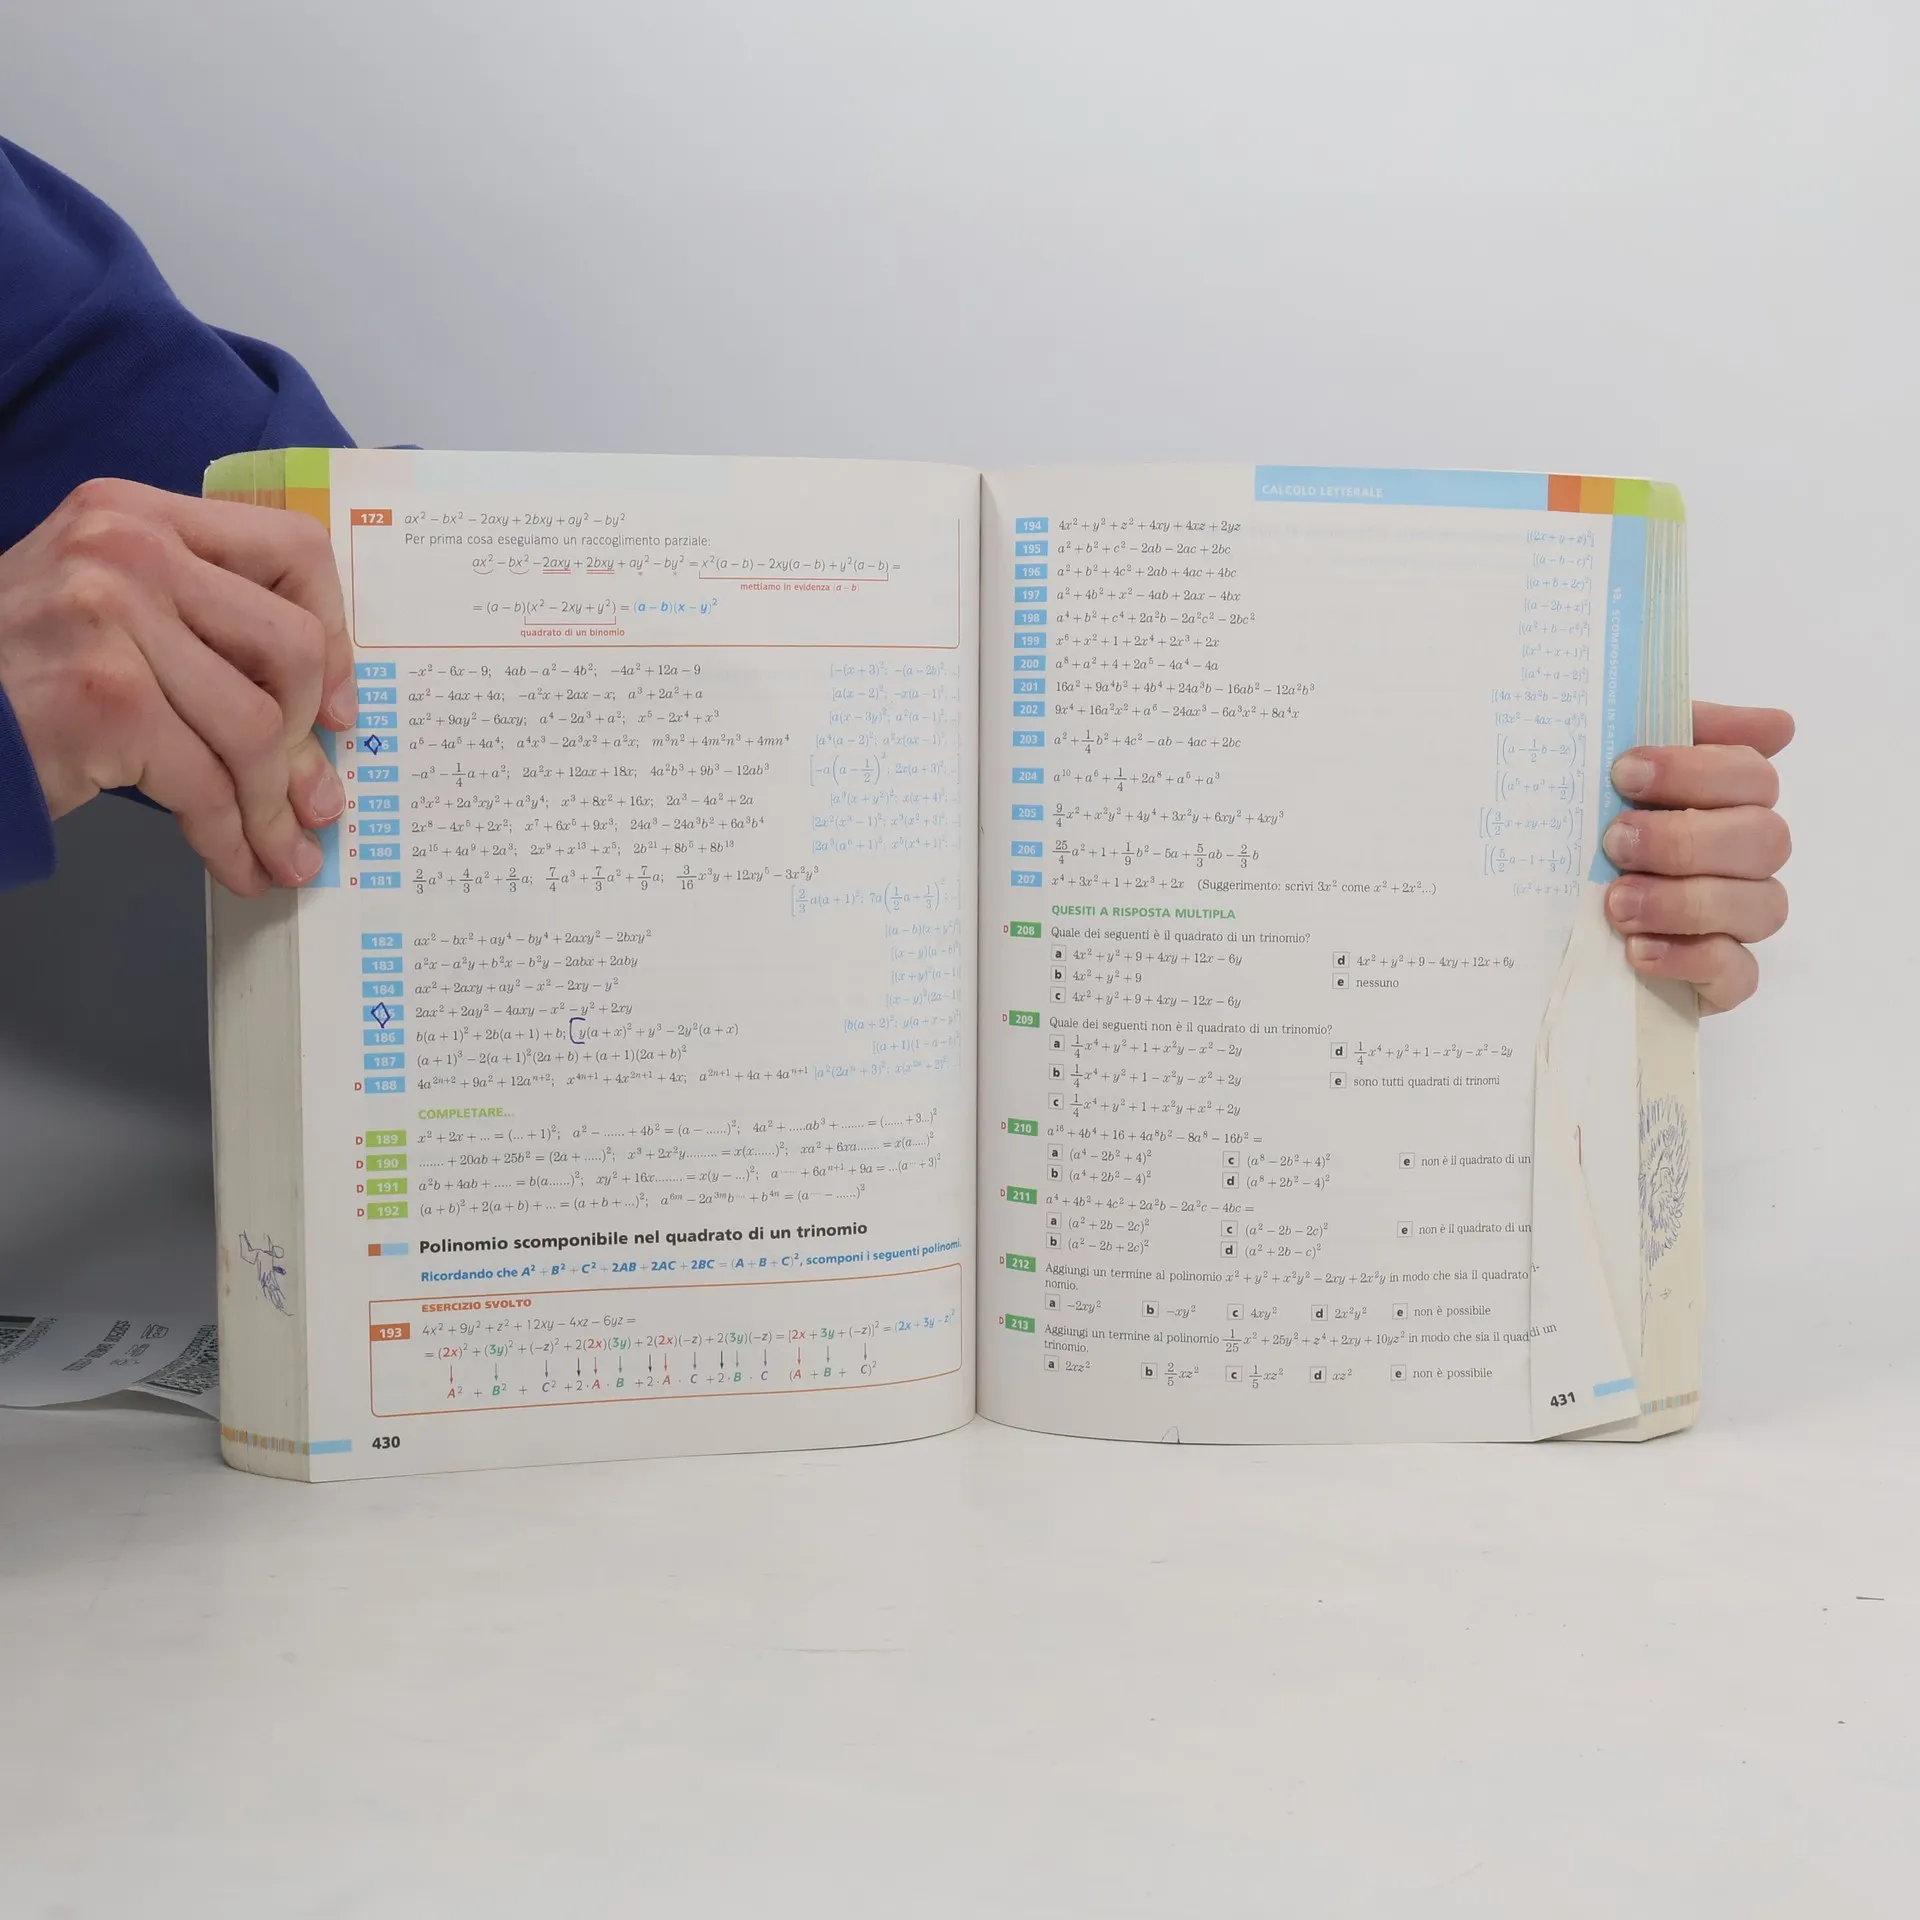 172 ax² − bx² − 2axy + 2bxy + ay² − by²
Per prima cosa eseguiamo un raccoglimento parziale:
ax² − bx² − 2axy + 2bxy + ay² − by² = x²(a − b) − 2xy(a − b) + y²(a − b) =
mettiamo in evidenza (a − b)
= (a − b)(x² − 2xy + y²) = (a − b)(x − y)²
quadrato di un binomio
173 −x² − 6x − 9; 4ab − a² − 4b²; −4a² + 12a − 9 [−(x + 3)²; −(a − 2b)²; ..]
174 ax² − 4ax + 4a; −a²x + 2ax − x; a³ + 2a² + a [a(x − 2)²; −x(a − 1)²; ..]
175 ax² + 9ay² − 6axy; a⁴ − 2a³ + a²; x⁵ − 2x⁴ + x³ [a(x − 3y)²; a²(a − 1)²; ..]
D a⁶ − 4a⁵ + 4a⁴; a⁴x³ − 2a³x² + a²x; m³n² + 4m²n³ + 4mn⁴ [a⁴(a − 2)²; a²x(ax − 1)²; ..]
D 177 −a³ − 1/4 a + a²; 2a²x + 12ax + 18x; 4a²b³ + 9b³ − 12ab³
D 178 a³x² + 2a³xy² + a³y⁴; x³ + 8x² + 16x; 2a³ − 4a² + 2a [a³(x + y²)²; x(x + 4)²; ..]
D 179 2x⁸ − 4x⁵ + 2x²; x⁷ + 6x⁵ + 9x³; 24a³ − 24a³b² + 6a³b⁴ [2x²(x³ − 1)²; x³(x² + 3)²; ..]
D 180 2a¹⁵ + 4a⁹ + 2a³; 2x⁹ + x¹³ + x⁵; 2b²¹ + 8b⁵ + 8b¹³ [2a³(a⁶ + 1)²; x⁵(x⁴ + 1)²; ..]
D 181 2/3 a³ + 4/3 a² + 2/3 a; 7/4 a³ + 7/3 a² + 7/9 a; 3/16 x³y + 12xy⁵ − 3x²y³
[2/3 a(a + 1)²; 7a(1/2 a + 1/3)²; ..]
182 ax² − bx² + ay⁴ − by⁴ + 2axy² − 2bxy² [(a − b)(x + y²)²]
183 a²x − a²y + b²x − b²y − 2abx + 2aby [(x − y)(a − b)²]
184 ax² + 2axy + ay² − x² − 2xy − y² [(x + y)²(a − 1)]
2ax² + 2ay² − 4axy − x² − y² + 2xy [(x − y)²(2a − 1)]
186 b(a + 1)² + 2b(a + 1) + b; y(a + x)² + y³ − 2y²(a + x) [b(a + 2)²; y(a + x − y)²]
187 (a + 1)³ − 2(a + 1)²(2a + b) + (a + 1)(2a + b)² [(a + 1)(1 − a − b)²]
D 188 4a²ⁿ⁺² + 9a² + 12aⁿ⁺²; x⁴ⁿ⁺¹ + 4x²ⁿ⁺¹ + 4x; a²ⁿ⁺¹ + 4a + 4aⁿ⁺¹ [a²(2aⁿ + 3)²; x(x²ⁿ + 2)²; ..]
COMPLETARE...
D 189 x² + 2x + ... = (... + 1)²; a² − ...... + 4b² = (a − ......)²; 4a² + .....ab³ + ....... = (...... + 3...)²
D 190 ....... + 20ab + 25b² = (2a + .....)²; x³ + 2x²y......... = x(x......)²; xa² + 6xa....... = x(a.....)²
D 191 a²b + 4ab + ..... = b(a......)²; xy² + 16x........ = x(y − ...)²; a····· + 6aⁿ⁺¹ + 9a = ...(a··· + 3)²
D 192 (a + b)² + 2(a + b) + ... = (a + b + ...)²; a⁶ᵐ − 2a³ᵐb··· + b⁴ⁿ = (a··· − ......)²
Polinomio scomponibile nel quadrato di un trinomio
Ricordando che A² + B² + C² + 2AB + 2AC + 2BC = (A + B + C)², scomponi i seguenti polinomi.
ESERCIZIO SVOLTO
193 4x² + 9y² + z² + 12xy − 4xz − 6yz =
= (2x)² + (3y)² + (−z)² + 2(2x)(3y) + 2(2x)(−z) + 2(3y)(−z) = [2x + 3y + (−z)]² = (2x + 3y − z)²
A² + B² + C² + 2 · A · B + 2 · A · C + 2 · B · C (A + B + C)²
430
CALCOLO LETTERALE
194 4x² + y² + z² + 4xy + 4xz + 2yz [(2x + y + z)²]
195 a² + b² + c² − 2ab − 2ac + 2bc [(a − b − c)²]
196 a² + b² + 4c² + 2ab + 4ac + 4bc [(a + b + 2c)²]
197 a² + 4b² + x² − 4ab + 2ax − 4bx [(a − 2b + x)²]
198 a⁴ + b² + c⁴ + 2a²b − 2a²c² − 2bc² [(a² + b − c²)²]
199 x⁶ + x² + 1 + 2x⁴ + 2x³ + 2x [(x³ + x + 1)²]
200 a⁸ + a² + 4 + 2a⁵ − 4a⁴ − 4a [(a⁴ + a − 2)²]
201 16a² + 9a⁴b² + 4b⁴ + 24a³b − 16ab² − 12a²b³ [(4a + 3a²b − 2b²)²]
202 9x⁴ + 16a²x² + a⁶ − 24ax³ − 6a³x² + 8a⁴x [(3x² − 4ax − a³)²]
203 a² + 1/4 b² + 4c² − ab − 4ac + 2bc [(a − 1/2 b − 2c)²]
204 a¹⁰ + a⁶ + 1/4 + 2a⁸ + a⁵ + a³ [(a⁵ + a³ + 1/2)²]
205 9/4 x² + x²y² + 4y⁴ + 3x²y + 6xy² + 4xy³ [(3/2 x + xy + 2y²)²]
206 25/4 a² + 1 + 1/9 b² − 5a + 5/3 ab − 2/3 b [(5/2 a − 1 + 1/3 b)²]
207 x⁴ + 3x² + 1 + 2x³ + 2x (Suggerimento: scrivi 3x² come x² + 2x²...) [(x² + x + 1)²]
QUESITI A RISPOSTA MULTIPLA
D 208 Quale dei seguenti è il quadrato di un trinomio?
a 4x² + y² + 9 + 4xy + 12x − 6y d 4x² + y² + 9 − 4xy + 12x + 6y
b 4x² + y² + 9 e nessuno
c 4x² + y² + 9 + 4xy − 12x − 6y
D 209 Quale dei seguenti non è il quadrato di un trinomio?
a 1/4 x⁴ + y² + 1 + x²y − x² − 2y d 1/4 x⁴ + y² + 1 − x²y − x² − 2y
b 1/4 x⁴ + y² + 1 − x²y − x² + 2y e sono tutti quadrati di trinomi
c 1/4 x⁴ + y² + 1 + x²y + x² + 2y
D 210 a¹⁶ + 4b⁴ + 16 + 4a⁸b² − 8a⁸ − 16b² =
a (a⁴ − 2b² + 4)² c (a⁸ − 2b² + 4)² e non è il quadrato di un
b (a⁴ + 2b² − 4)² d (a⁸ + 2b² − 4)²
D 211 a⁴ + 4b² + 4c² + 2a²b − 2a²c − 4bc =
a (a² + 2b − 2c)² c (a² − 2b − 2c)² e non è il quadrato di un
b (a² − 2b + 2c)² d (a² + 2b − c)²
D 212 Aggiungi un termine al polinomio x² + y² + x²y² − 2xy + 2x²y in modo che sia il quadrato
nomio.
a −2xy² b −xy² c 4xy² d 2x²y² e non è possibile
D 213 Aggiungi un termine al polinomio 1/25 x² + 25y² + z⁴ + 2xy + 10yz² in modo che sia il quad di un
trinomio.
a 2xz² b 2/5 xz² c 1/5 xz² d xz² e non è possibile
431